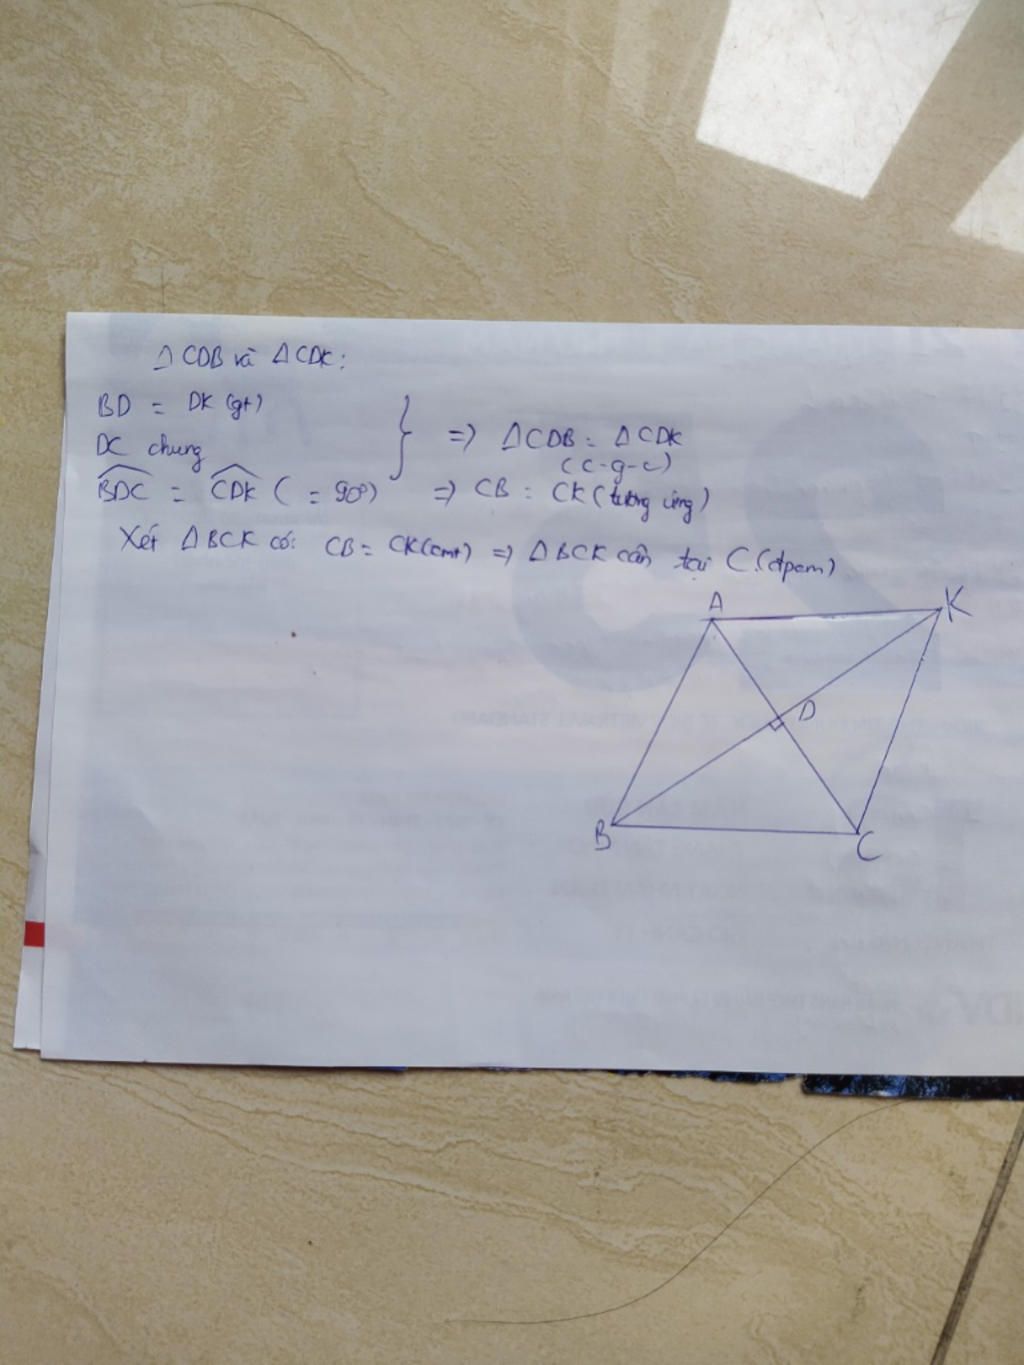 Δ CDB và Δ CDK:
BD = DK (gt)
DC chung
=> Δ CDB = Δ CDK
(c-g-c)
BDC = CDK ( = 90°) => CB = CK (tương ứng)
Xét Δ BCK có: CB = CK (cmt) => Δ BCK cân tại C. (đpcm)
A
K
D
B
C